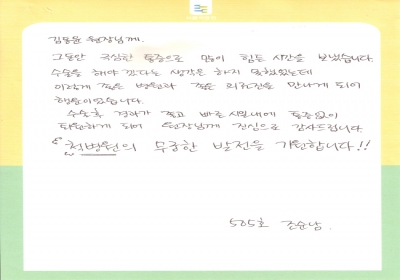 김동윤 원장님께.
그동안 극심한 통증으로 많이 힘든 시간을 보냈습니다.
수술을 해야 낀다는 생각은 하지 못했었는데
이렇게 좋은 병원과 좋은 의료진을 만나게 되어
행운이었습니다.
수술후 경과가 좋고 빠른 시일내에 통증없이
퇴원하게 되어 원장님께 진심으로 감사드립니다
"척병원의 무궁한 발전을 기원합니다!!
505호 조순남.